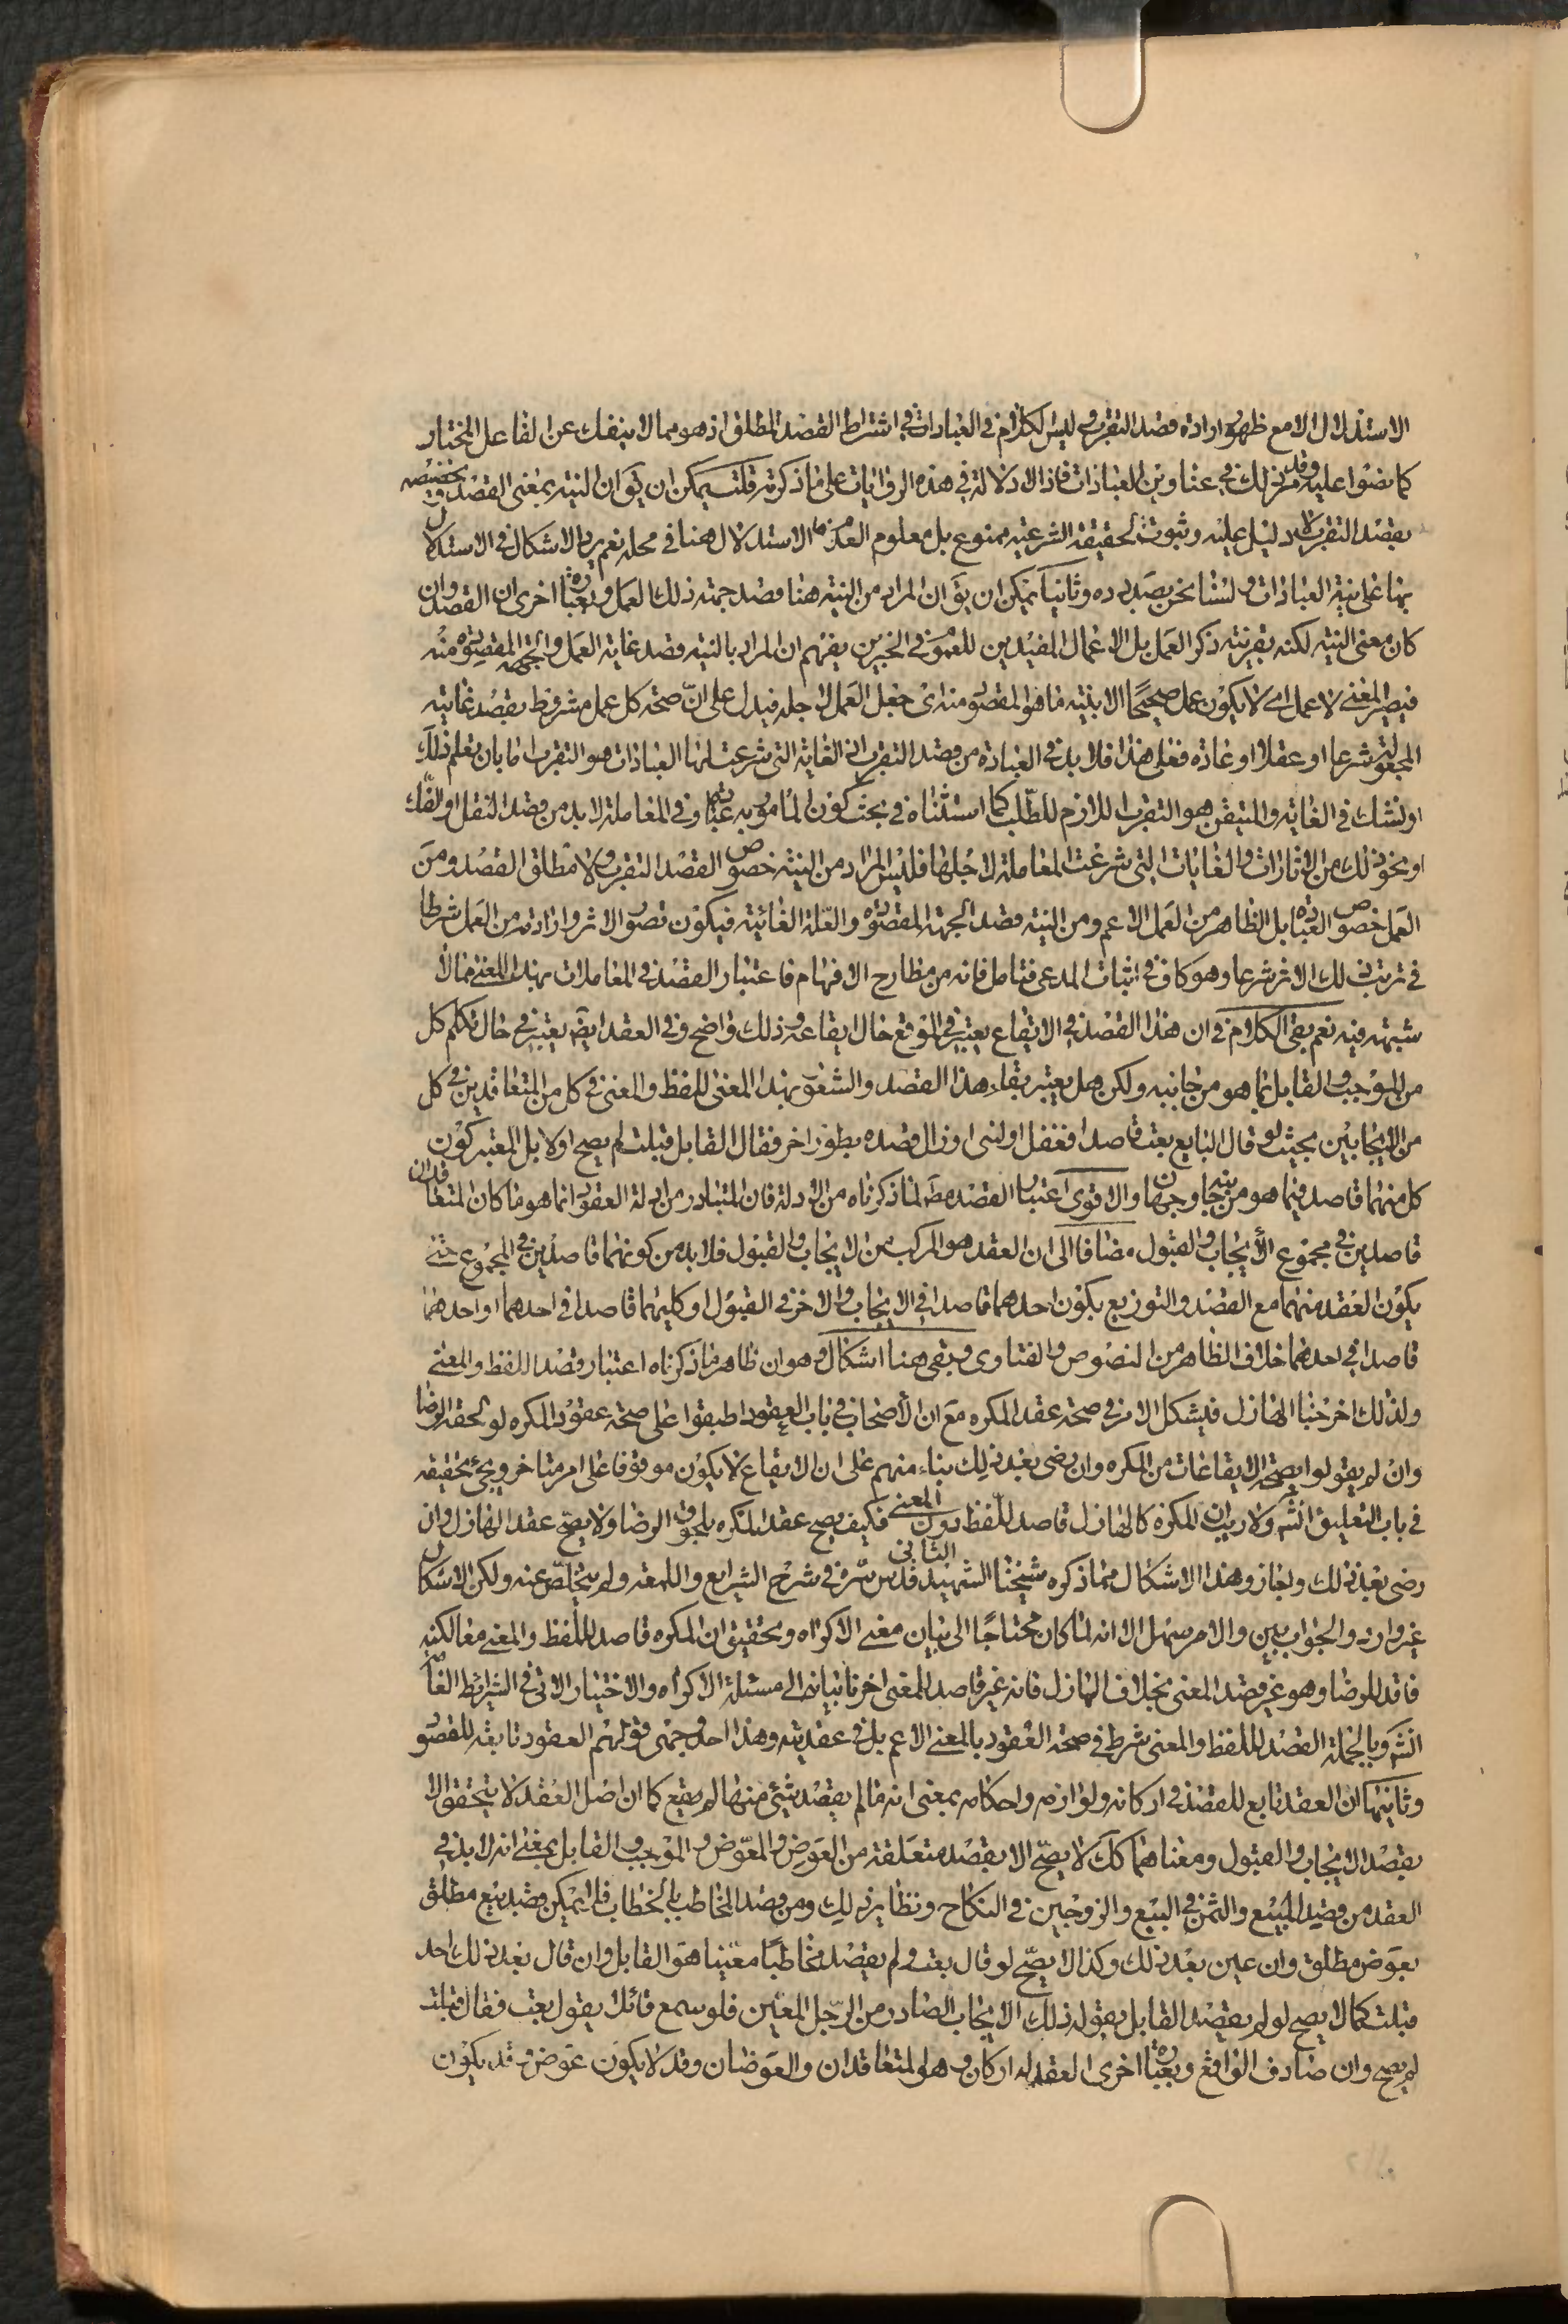 الاستدلال الا مع ظهور ارادة قصد التقرب وليس الكلام في العبادات في اشتراط القصد المطلق اذ هو مما لا ينفك عن الفاعل المختار
كما نصوا عليه وقد مر ذلك في عناوين العبادات فاذا لا دلالة في هذه الروايات على ما ذكرته قلت يمكن ان يق ان النية بمعنى القصد وتخصيصه
بقصد التقرب لا دليل عليه وثبوت الحقيقة الشرعية ممنوع بل معلوم العدم فالاستدلال هنا في محله نعم يرد الاشكال في الاستدلال
بها على نية العبادات ولسنا نحن بصدده وثانيا يمكن ان يق ان المراد من النية هنا قصد جهة ذلك العمل وبعبارة اخرى ان القصد وان
كان معنى النية لكنه بقرينة ذكر العمل بل الاعمال المفيدين للعموم في الخبرين يفهم ان المراد بالنية قصد غاية العمل والجهة المقصودة منه
فيصير المعنى لا عمل اي لا يكون عمل صحيحا الا بنية ما هو المقصود منه اي جعل العمل لاجله فيدل على ان صحة كل عمل مشروط بقصد غايته
المجعولة شرعا او عقلا او عادة فعلى هذا فلا بد في العبادة من قصد التقرب اذ الغاية التي شرعت لها العبادات هو التقرب اما بان نعلم ذلك
او نشك في الغاية والمتيقن هو التقرب اللازم للطلب كما استثناه في بحث كون المأمور به عبادة وفي المعاملة لا بد من قصد النقل او الفك
او نحو ذلك من الآثار والغايات التي شرعت المعاملة لاجلها فليس المراد من النية خصوص القصد التقرب ولا مطلق القصد ومن
العمل خصوص العبادة بل الظاهر من العمل الاعم ومن النية قصد الجهة المقصودة والعلة الغائية فيكون تصور الاثر وارادته من العمل شرطا
في ترتب ذلك الاثر شرعا وهو كاف في اثبات المدعى فتامل فانه من مطارح الافهام فاعتبار القصد في المعاملات بهذا المعنى مما لا
شبهة فيه نعم بقي الكلام في ان هذا القصد في الايقاع يعتبر في الموقع حال ايقاعه وذلك واضح وفي العقد ايضا يعتبر في حال تكلم كل
من الموجب والقابل بما هو من جانبه ولكن هل يعتبر بقاء هذا القصد والشعور بهذا المعنى للفظ والمعنى في كل من المتعاقدين في كل
من الايجابين بحيث لو قال البايع بعت قاصدا فغفل او نسى او زال قصده بطور اخر فقال القابل قبلت لم يصح او لا بل المعتبر كون
كل منهما قاصد فيما هو من جانبه وجهان والاقوى اعتبار القصد مط لما ذكرناه من الادلة فان المتبادر من ادلة العقود انما هو ما كان المتعاقدان
قاصدين في مجموع الايجاب والقبول مضافا الى ان العقد هو المركب من الايجاب والقبول فلا بد من كونهما قاصدين في المجموع حتى
يكون العقد منهما مع القصد والتوزيع بكون احدهما قاصدا في الايجاب والاخر في القبول او كليهما قاصدا في احدهما او احدهما
قاصدا في احدهما خلاف الظاهر من النصوص والفتاوى وبقي هنا اشكال وهو ان ظاهر ما ذكرناه اعتبار قصد اللفظ والمعنى
ولذلك اخرجنا الهازل فيشكل الامر في صحة عقد المكره مع ان الاصحاب في باب العقود اطبقوا على صحة عقود المكره لو لحقه الرضا
وان لم يقولوا بصحة الايقاعات من المكره وان رضى بعد ذلك بناء منهم على ان الايقاع لا يكون موقوفا على امر متاخر ويجئ تحقيقه
في باب التعليق انش ولا ريب ان المكره كالهازل قاصد للفظ دون المعنى فكيف يصح عقد المكره بلحوق الرضا ولا يصح عقد الهازل وان
رضى بعد ذلك واجاز وهذا الاشكال مما ذكره شيخنا الشهيد الثاني قدس سره في شرح الشرايع واللمعة ولم يتخلص عنه ولكن الاشكال
غير وارد والجواب بين والامر سهل الا انه لما كان محتاجا الى بيان معنى الاكراه وتحقيق ان المكره قاصد للفظ والمعنى معا لكنه
فاقد للرضا وهو غير قصد المعنى بخلاف الهازل فانه غير قاصد للمعنى اخرنا بيانه الى مسئلة الاكراه والاختيار الاتي في الشرايط العامة
انش وبالجملة القصد للفظ والمعنى شرط في صحة العقود بالمعنى الاعم بل في عقديته وهذا احد وجهي قولهم العقود تابعة للقصود
وثانيهما ان العقد تابع للقصد في اركانه ولوازمه واحكامه بمعنى انه ما لم يقصد شئ منها لم يقع كما ان اصل العقد لا يتحقق الا
بقصد الايجاب والقبول ومعناهما كك لا يصح الا بقصد متعلقه من العوض والمعوض والموجب والقابل بمعنى انه لا بد في
العقد من قصد المبيع والثمن في البيع والزوجين في النكاح ونظاير ذلك ومن قصد المخاطب بالخطاب فلا يمكن قصد بيع مطلق
بعوض مطلق وان عين بعد ذلك وكذا لا يصح لو قال بعت ولم يقصد مخاطبا معينا هو القابل وان قال بعد ذلك احد
قبلت كما لا يصح لو لم يقصد القابل بقوله ذلك الايجاب الصادر من الرجل المعين فلو سمع قائلا يقول بعت فقال قبلت
لم يصح وان صادف الواقع وبعبارة اخرى العقد له اركان وهو المتعاقدان والعوضان وقد لا يكون عوض وقد يكون